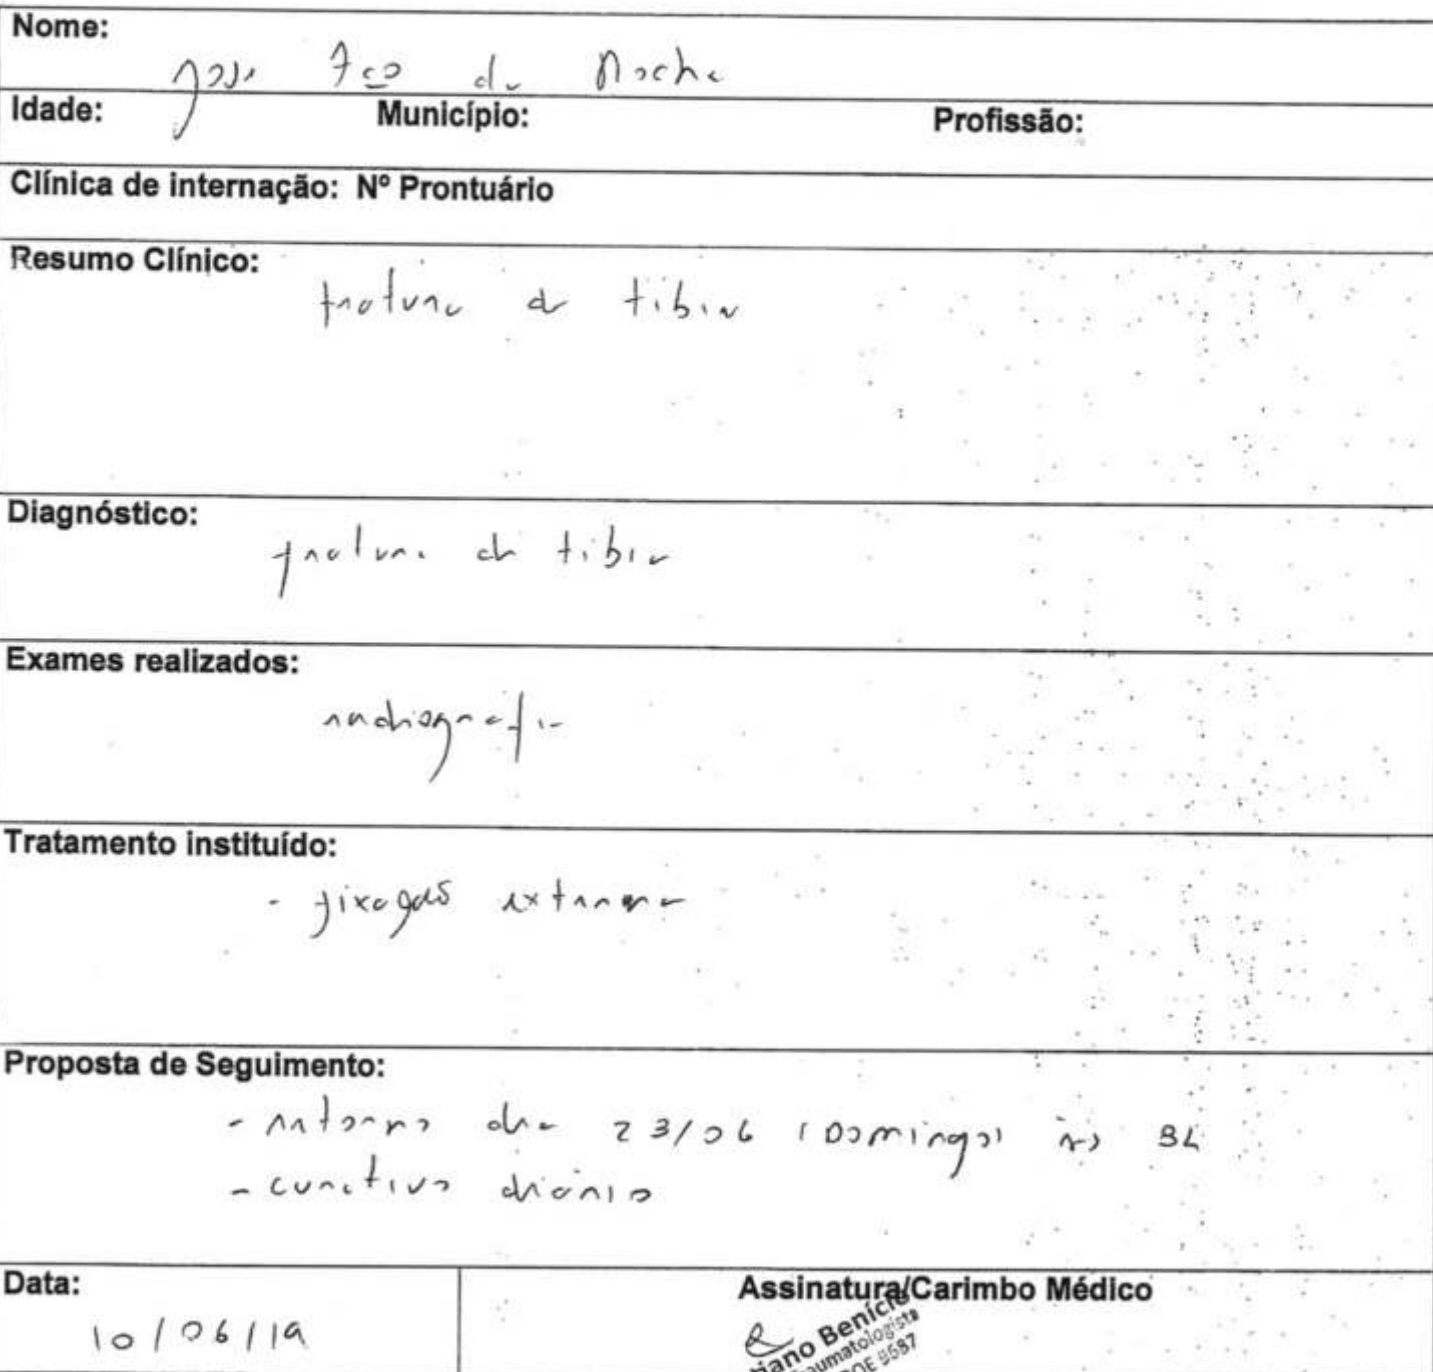 Nome:
José Fco da Rocha
Idade: Município: Profissão:
Clínica de internação: Nº Prontuário
Resumo Clínico:
fratura de tibia
Diagnóstico:
fratura de tibia
Exames realizados:
radiografia
Tratamento instituído:
- fixação externa
Proposta de Seguimento:
- retorno dia 23/06 (Domingo) às 8h
- curativo diário
Data: Assinatura/Carimbo Médico
10/06/19
iano Benício
umatologista
OE 9587